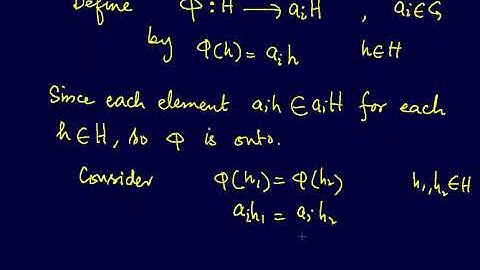 Define φ : H ⟶ aᵢH , aᵢ∈G
by φ(h) = aᵢh h∈H
Since each element aᵢh ∈ aᵢH for each
h∈H, so φ is onto.
Consider φ(h₁) = φ(h₂) h₁, h₂∈H
aᵢh₁ = aᵢh₂